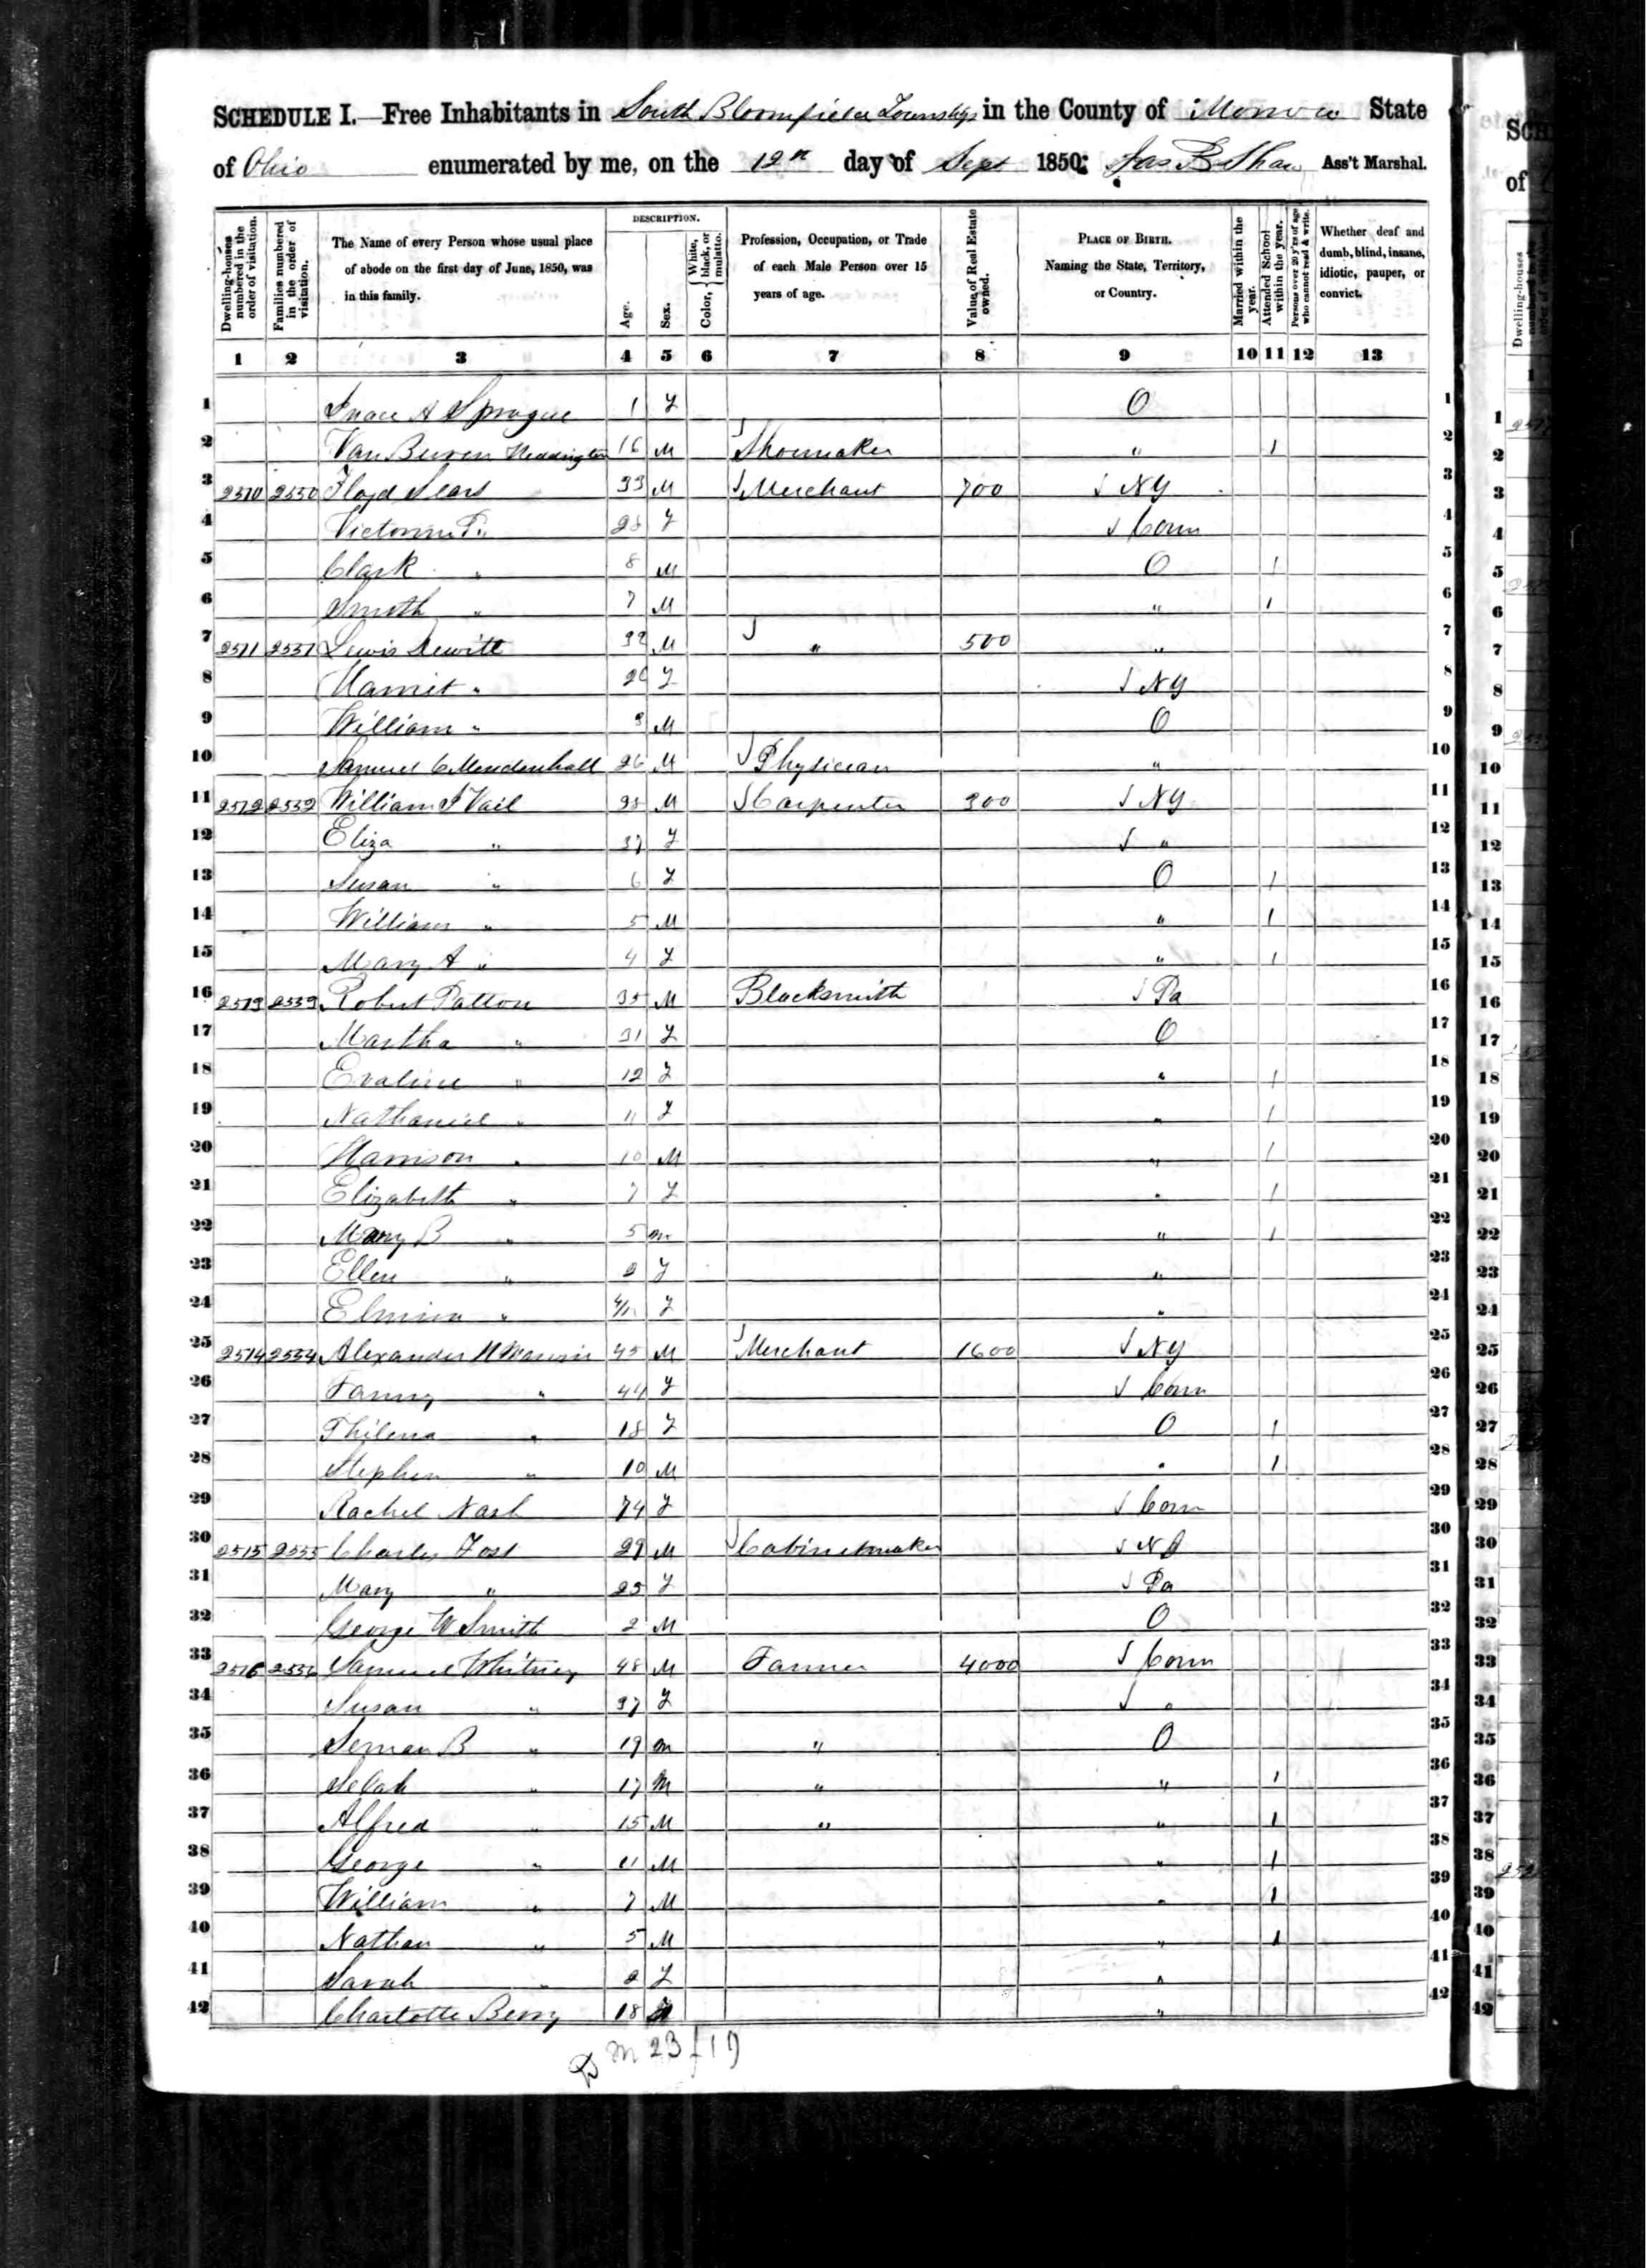 SCHEDULE I.—Free Inhabitants in South Bloomfield Township in the County of Morrow State
of Ohio enumerated by me, on the 12th day of Sept 1850. Jas B Shaw Ass't Marshal.
Dwelling-houses numbered in the order of visitation.
Families numbered in the order of visitation.
The Name of every Person whose usual place of abode on the first day of June, 1850, was in this family.
DESCRIPTION.
Age.
Sex.
Color, White, black, or mulatto.
Profession, Occupation, or Trade of each Male Person over 15 years of age.
Value of Real Estate owned.
PLACE OF BIRTH. Naming the State, Territory, or Country.
Married within the year.
Attended School within the year.
Persons over 20 y'rs of age who cannot read & write.
Whether deaf and dumb, blind, insane, idiotic, pauper, or convict.
1 2 3 4 5 6 7 8 9 10 11 12 13
1 A Sprague 1 F O 1
2 Van Buren 16 M Shoemaker " 1 2
3 2510 2530 Floyd Sears 33 M Merchant 700 NY 3
4 28 F Conn 4
5 Clark " 8 M O 1 5
6 Smith " 7 M " 1 6
7 2511 2531 Lewis Dewitt 32 M " 500 " 7
8 Harriet " F NY 8
9 William " 3 M O 9
10 Samuel C Mendenhall 26 M Physician " 10
11 2512 2532 William Vail 38 M Carpenter 300 NY 11
12 Eliza " 37 F " 12
13 Susan " 6 F O 1 13
14 William " 5 M " 1 14
15 Mary A " 4 F " 1 15
16 2513 2533 Robert Patton 35 M Blacksmith Pa 16
17 Martha " 31 F O 17
18 Evaline " 12 F " 1 18
19 Nathaniel " 11 F " 1 19
20 Harrison " 10 M " 1 20
21 Elizabeth " 7 F " 1 21
22 Mary B " 5 m " 1 22
23 Ellen " 2 F " 23
24 Elmira " 4/12 F " 24
25 2514 2534 Alexander 45 M Merchant 1600 NY 25
26 Fanny " 44 F Conn 26
27 Philena " 18 F O 1 27
28 Stephen " 10 M " 1 28
29 Rachel Nash 74 F Conn 29
30 2515 2535 Charles 29 M Cabinetmaker 30
31 Mary " 25 F Pa 31
32 George W Smith 2 M O 32
33 2516 2536 Samuel Whitney 48 M Farmer 4000 Conn 33
34 Susan " 37 F " 34
35 B " 19 m " O 35
36 Selah " 17 M " " 1 36
37 Alfred " 15 M " " 1 37
38 George " 11 M " 1 38
39 William " 7 M " 1 39
40 Nathan " 5 M " 1 40
41 Sarah " 2 F " 41
42 Charlotte Berry 18 " 42
m 23 f 19